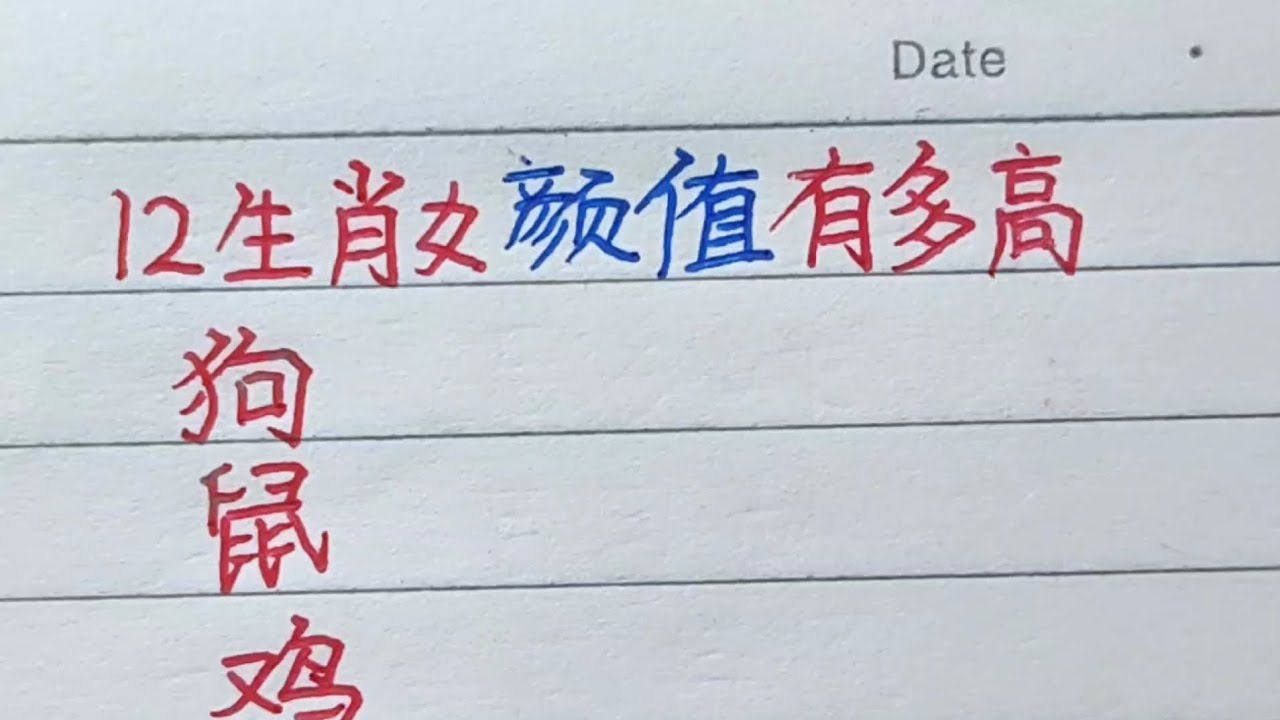 Date
12生肖女颜值有多高
狗
鼠
鸡